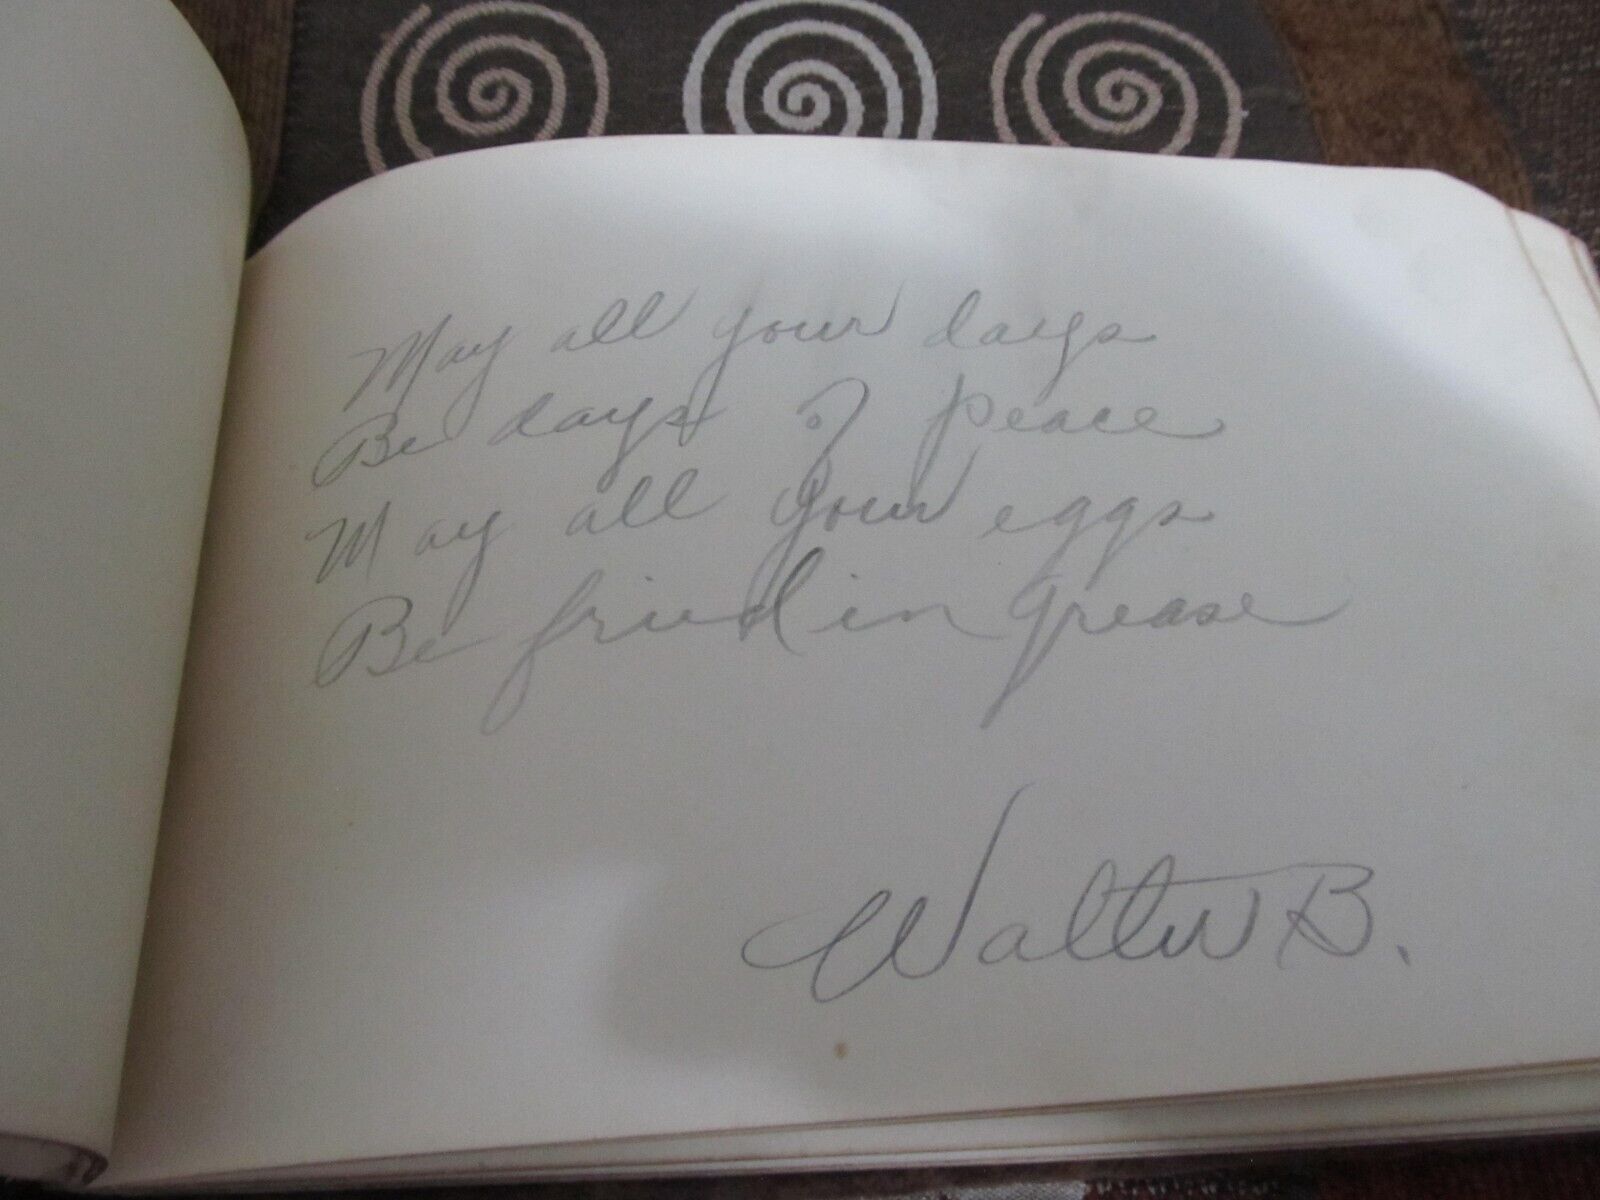 May all your days
Be days of peace
May all your eggs
Be fried in grease
Walter B.